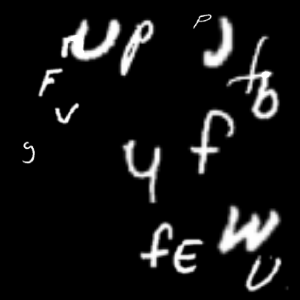 r U P P J
F f b
V
g 4 f
f E W
U